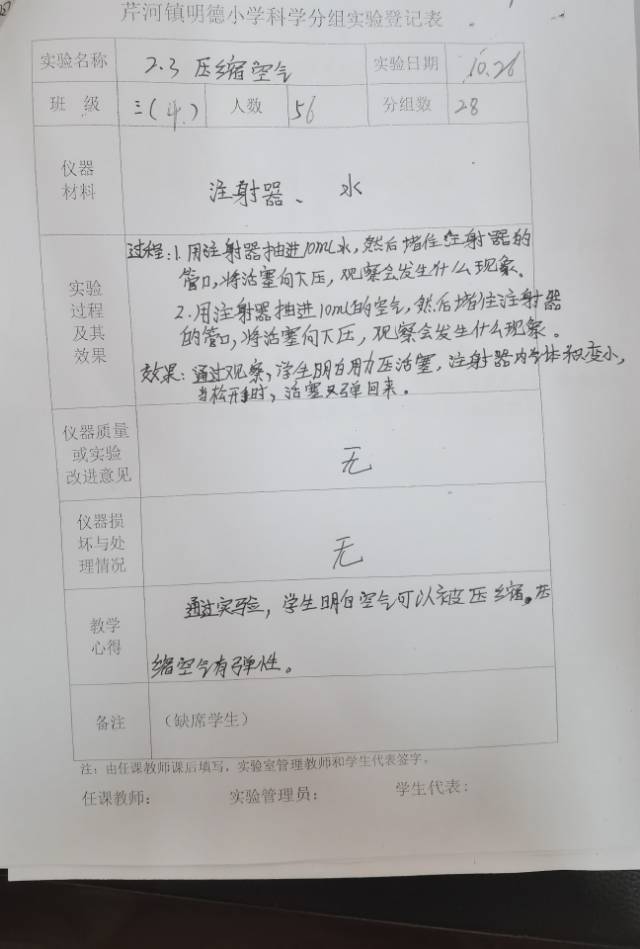 芹河镇明德小学科学分组实验登记表
实验名称 2.3 压缩空气 实验日期 10.26
班级 三(4.) 人数 56 分组数 28
仪器
材料
注射器、 水
实验
过程
及其
效果
过程:1.用注射器抽进10mL水,然后堵住注射器的
管口,将活塞向下压,观察会发生什么现象。
2.用注射器抽进10mL的空气,然后堵住注射器
的管口,将活塞向下压,观察会发生什么现象。
效果:通过观察,学生明白用力压活塞,注射器内气体积变小,
当松开时,活塞又弹回来。
仪器质量
或实验
改进意见
无
仪器损
坏与处
理情况
无
教学
心得
通过实验,学生明白空气可以被压缩。压
缩空气有弹性。
备注 (缺席学生)
注:由任课教师课后填写,实验室管理教师和学生代表签字。
任课教师: 实验管理员: 学生代表: